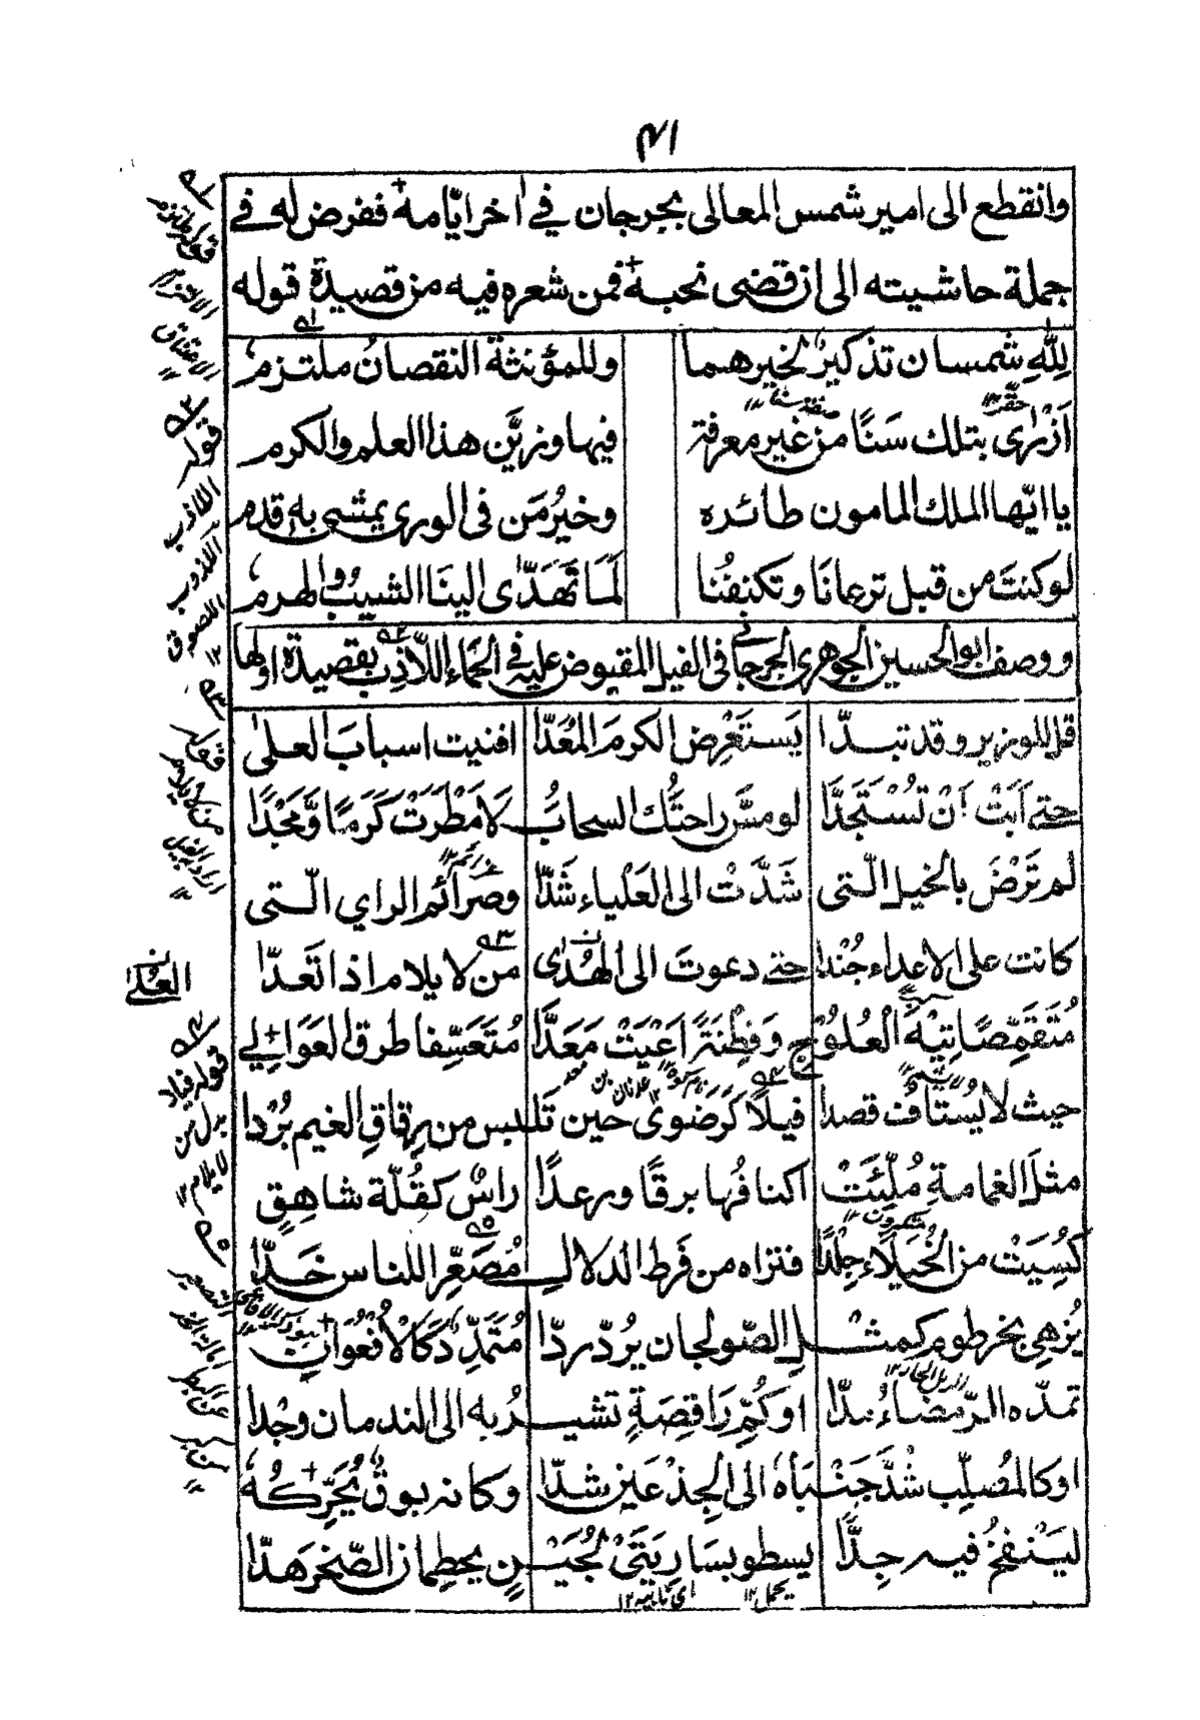 ٤١
وانقطع الى امير شمس المعالى بجرجان في اٰخر ايّامه ففرض له في
جملة حاشيته الى ان قضى نحبه فمن شعره فيه من قصيدة قوله
لِلّٰهِ شمسان تذكيرٌ لخيرهما وللمؤنثة النقصانُ ملتزم
اَزْرٰى بتلك سَنًا من غير معرفة فيها وزيَّن هذا العلم والكرم
يا ايّها الملك المامون طائره وخيرُ مَن فى الورى يمشى به قدم
لو كنتَ من قبل ترعانا وتكنفُنا لَمَا تَهَدَّى الينا الشيبُ والهرم
ووصف ابو الحسين الجوهرى الجرجانى فى الفيل المقبوض عليه فى الحماء اللاّذِب بقصيدة اولها
قل للوزير وقد تبدّا يَستَعْرِض الكرم المُعَدّا افنيت اسبابَ العلى
حتى اَبَتْ اَنْ تُسْتَجَدَّا لو مسَّ راحتَك السحابُ لَاَمْطَرَتْ كَرَمًا وَّمَجْدًا
لم تَرْضَ بالخيل الّتى شَدَّتْ الى العَلْياءِ شَدّا وصَرائم الراي الّتى
كانت على الاعداء جُنْدا حتى دعوتَ الى الهُدٰى من لا يلام اذا تَعَدّا
مُتَقَمِّصًا تِيْهَ العُلُوْجِ وَفِطْنَةً اَعْيَتْ مَعَدًّا مُتَعَسِّفا طرق العَوَالِي
حيث لا يُستَافُ قصدا فيلًا كَرَضْوٰى حين تَلبس من رِقاقِ الغيم بُرْدا
مثلَ الغمامةِ مُلِّئَتْ اكنافُها برقًا ورعدًا راسٌ كقُلّة شاهِقٍ
كُسِيَتْ من الخُيَلَاءِ جِلْدًا فتراه من فَرط الدلالِ مُصَعِّرا للناس خَدّا
يُزْهى بخرطوم كمثلِ الصّولجان يُردّ ردّا مُتَمَدِّدٌ كالاُفْعُوَانِ
تمدّه الرّمضاءُ مدّا او كُمِّ رَاقِصَةٍ تشيرُ به الى الندمان وجْدا
او كالمُصلِّب شُدَّ جَنْبَاهُ الى الجِذْعَين شدّا وكانه بوقٌ يُحَرِّكُهُ
ليَنْفُخ فيه جِدَّا يسطو بسَارِيَتَىْ لُجَيْنٍ يحطمان الصّخر هَدّا
قوله
اللاذب
اللازوب
اللصوق
قوله
من لا يلام
اراد به الفيل
العُلٰى
قوله فيلا
بدل من
لا يلام